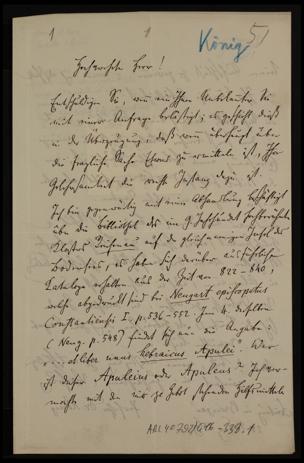 1 1
König 51
Hochgeehrter Herr!
Entschuldigen Sie, wenn ein Ihnen Unbekannter Sie
mit einer Anfrage belästigt; es geschieht dieß
in der Überzeugung, daß wenn überhaupt über
die fragliche Sache Etwas zu ermitteln ist, Ihre
Gelehrsamkeit die rechte Instanz dazu ist.
Ich bin gegenwärtig mit einer Abhandlung beschäftigt
über die Bibliothek des im 9. Jahrhundert hochberühmten
Klosters Reichenau auf der gleichnamigen Insel des
Bodensees; es haben sich darüber ausführliche
Kataloge erhalten aus der Zeit von 822–840,
welche abgedruckt sind bei Neugart episcopatus
Constantiensis I. p. 536–552. Im 4. derselben
(Neug. p. 548) findet sich nun die Angabe:
"... et liber unus hebraicus Apulei". Wer
ist dieser Apuleius oder Apuleus? Ich ver-
mochte mit den mir zu Gebot stehenden Hilfsmitteln
ARC 4* 792/G16-339.1